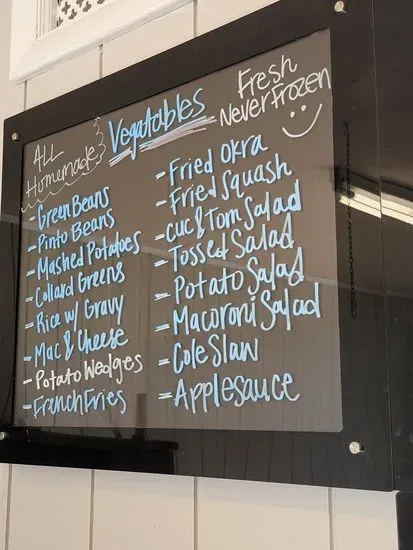 ALL
Homemade
Vegatables
Fresh
Never Frozen
- Green Beans
- Pinto Beans
- Mashed Potatoes
- Collard Greens
- Rice w/ Gravy
- Mac & Cheese
- Potato Wedges
- Franch Fries
- Fried Okra
- Fried Squash
- Cuc & Tom Salad
- Tossed Salad
- Potato Salad
- Macoroni Salad
- Cole Slaw
- Applesauce